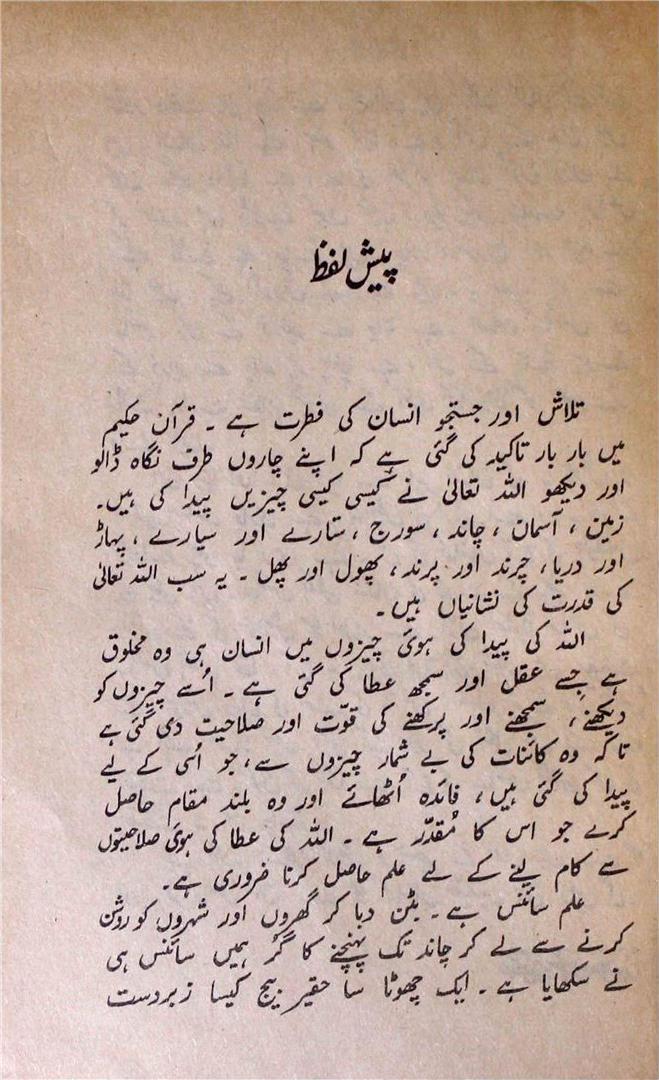 پیش لفظ
تلاش اور جستجو انسان کی فطرت ہے ۔ قرآن حکیم
میں بار بار تاکید کی گئی ہے کہ اپنے چاروں طرف نگاہ ڈالو
اور دیکھو اللہ تعالیٰ نے کیسی کیسی چیزیں پیدا کی ہیں۔
زمین ، آسمان ، چاند ، سورج ، ستارے اور سیارے ، پہاڑ
اور دریا ، چرند اور پرند ، پھول اور پھل ۔ یہ سب اللہ تعالیٰ
کی قدرت کی نشانیاں ہیں ۔
اللہ کی پیدا کی ہوئی چیزوں میں انسان ہی وہ مخلوق
ہے جسے عقل اور سمجھ عطا کی گئی ہے ۔ اُسے چیزوں کو
دیکھنے ، سمجھنے اور پرکھنے کی قوّت اور صلاحیت دی گئی ہے
تاکہ وہ کائنات کی بے شمار چیزوں سے ، جو اُسی کے لیے
پیدا کی گئی ہیں ، فائدہ اُٹھائے اور وہ بلند مقام حاصل
کرے جو اس کا مُقدّر ہے ۔ اللہ کی عطا کی ہوئی صلاحیتوں
سے کام لینے کے لیے علم حاصل کرنا ضروری ہے ۔
علم سائنس ہے ۔ بٹن دبا کر گھروں اور شہروں کو روشن
کرنے سے لے کر چاند تک پہنچنے کا گُر ہمیں سائنس ہی
نے سکھایا ہے ۔ ایک چھوٹا سا حقیر بیج کیسا زبردست